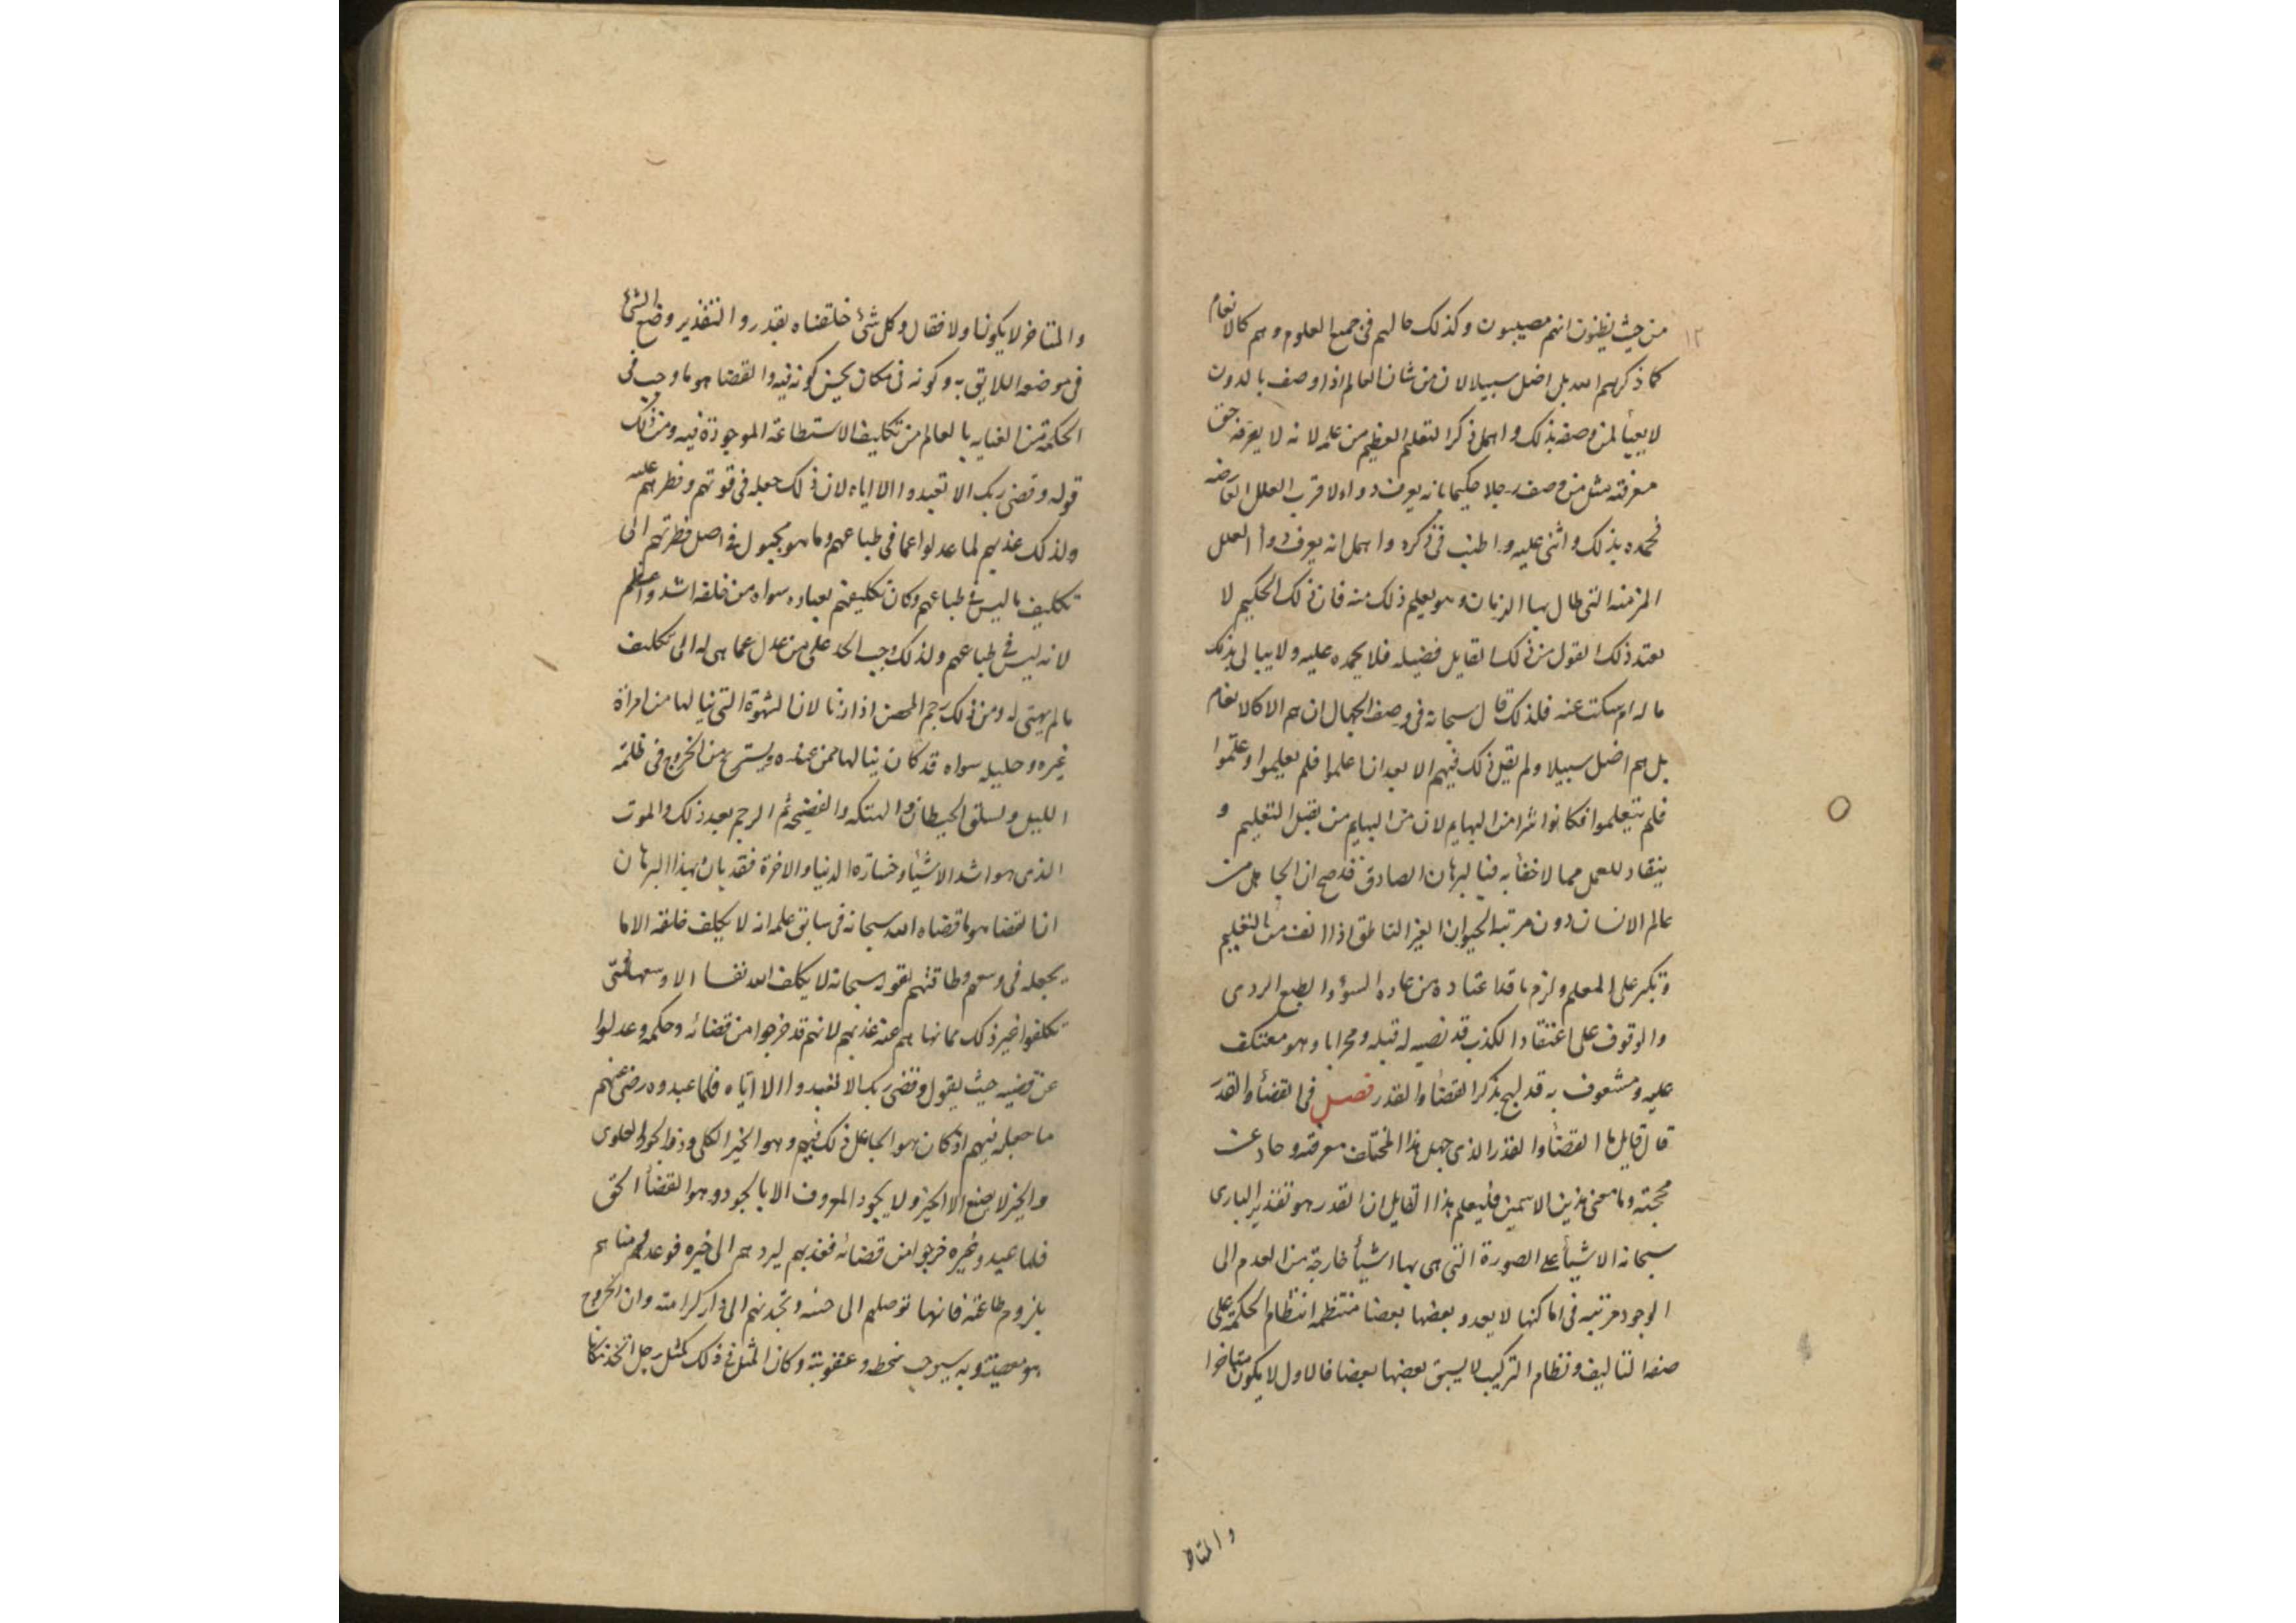 ١٢
من حيث يظنون انهم مصيبون وكذلك حالهم فى جميع العلوم وهم كالانعام
كما ذكرهم الله بل اضل سبيلا لان من شان العالم اذا وصف بالدون
لا يعبأ لمن وصفه بذلك واهمل ذكر العلم العظيم من علمه لانه لا يعرفه حق
معرفته مثل من وصف رجلا حكيما بانه يعرف دواء لاقرب العلل العارضه
فحمده بذلك واثنى عليه واطنب فى ذكره واهمل انه يعرف دوأ العلل
المزمنه التى طال بها الزمان وهو يعلم ذلك منه فان ذلك الحكيم لا
يعتد ذلك القول من ذلك القايل فضيله فلا يحمده عليه ولا يبالى بذلك
ما له ام سكت عنه فلذلك قال سبحانه فى وصف الجهال ان هم الا كالانعام
بل هم اضل سبيلا ولم يقل ذلك فيهم الا بعد انا علموا فلم يعلموا وعلموا
فلم يتعلموا فكانوا شرا من البهايم لان من البهايم من يقبل التعليم و
ينقاد للعمل مما لا خفأ به فبالبرهان الصادق قد صح ان الجاهل من
عالم الانسان دون مرتبة الحيوان الغير الناطق اذا انف من التعليم
وتكبر على المعلم ولزم ما قد اعتاده من عاده السوء والطبع الردى
والوقوف على اعتقاد الكذب قد نصبه له قبله ومحرابا وهو معتكف
عليه ومشعوف به قد لهج بذكر القضأ والقدر فصل فى القضأ والقدر
قال قايل ما القضأ والقدر الذى جهل هذا المختلف معرفته وحاد عن
محجته وما معنى هذين الاسمين فليعلم هذا القايل ان القدر هو تقدير البارى
سبحانه الاشيأ على الصورة التى هى بها اشيأ خارجة من العدم الى
الوجود مرتبه فى اماكنها لا يعدو بعضها بعضا منتظمه انتظام الحكمة على
صفه التاليف ونظام التركيب لا يسبق بعضها بعضا فالاول لا يكون متاخرا
والمتاخر
والمتاخر لا يكون اولا فقال وكل شئ خلقناه بقدر والتقدير وضع الشئ
فى موضعه اللايق به وكونه فى مكان يحسن كونه فيه والقضا هو ما وجب فى
الحكمة من العنايه بالعالم من تكليف الاستطاعة الموجودة فيه ومن ذلك
قوله وقضى ربك الا تعبدوا الا اياه لان ذلك جعله فى قوتهم وفطرهم عليه
ولذلك عذبهم لما عدلوا عما فى طباعهم وما هو مجبول فى اصل فطرتهم الى
تكليف ما ليس فى طباعهم وكان تكليفهم بعباده سواه من خلقه اشد واعظم
لانه ليس فى طباعهم ولذلك وجب الحد على من عدل عما هى له الى تكلف
ما لم يهتى له ومن ذلك رجم المحصن اذا زنا لان الشهوة التى نيالها من امراة
غيره وحليله سواه قد كان ينالها ممن عنده ويستريح من الخروج فى ظلمة
الليل وتسلق الحيطان والهتكه والفضيحه ثم الرجم بعد ذلك والموت
الذى هو اشد الاشيأ وخسارة الدنيا والاخرة فقد بان بهذا البرهان
ان القضا هو ما قضاه الله سبحانه فى سابق علمه انه لا يكلف خلقه الا ما
يجعله فى وسعهم وطاقتهم لقوله سبحانه لا يكلف الله نفسا الا وسعها فمتى
تكلفوا غير ذلك مما نهاهم عنه عذبهم لانهم قد خرجوا من قضائه وحكمه وعدلوا
عن قضيه حيث يقول وقضى ربك الا تعبدوا الا اياه فلما عبدوه رضى عنهم
ما جعله فيهم اذ كان هو الجاعل ذلك فيهم وهو الخير الكلى وذو الجود العلوى
والخير لا يصنع الا الخير ولا يجود المعروف الا بالجود وهو القضأ الحق
فلما عبدو غيره خرجوا من قضائه فعذبهم ليردهم الى خيره فوعدهم مناهم
بلزوم طاعته فانها توصلهم الى جنته وتجذبهم الى دار كرامته وان الخروج
هو معصيته وبه يستوجب سخطه وعقوبته وكان المثل فى ذلك كمثل رجل اتخذ مكانا